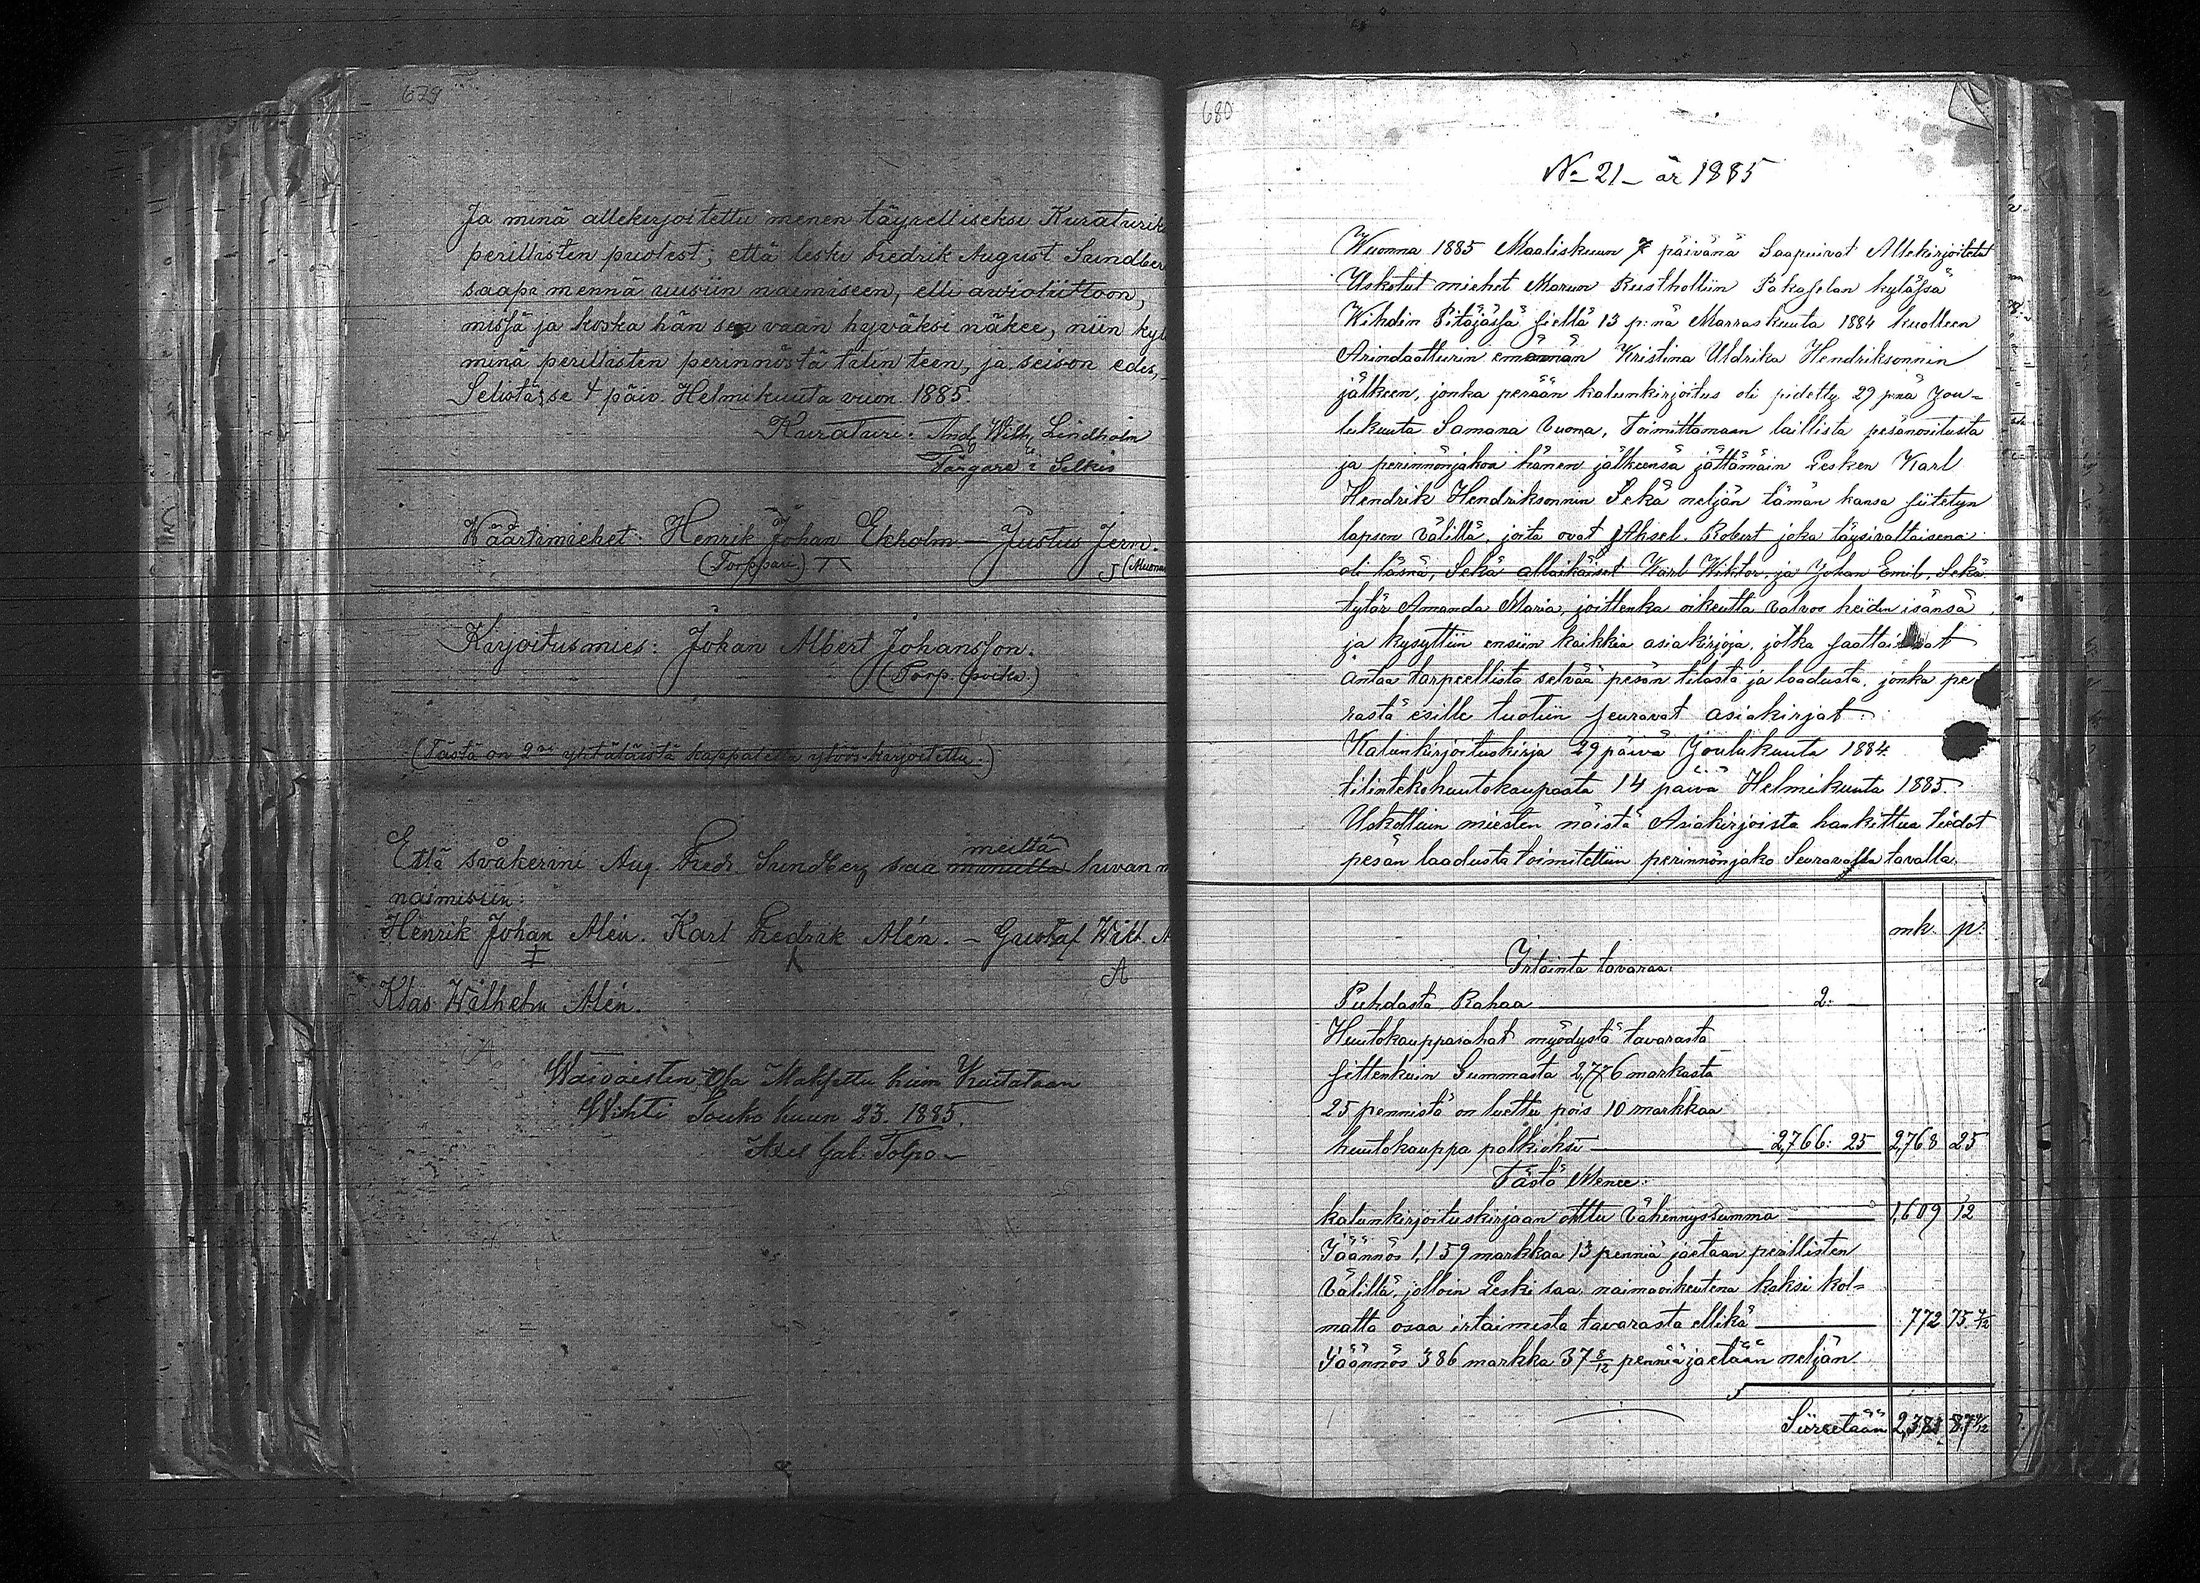 679
Ja minä allekirjoitettu menen täyvelliseksi Kuraturik
perillisten puolest; että leski Fredrik August Sundber
saapa mennä uusiin naimiseen, elli avioliittoon,
missä ja koska hän sen vaan hyväksi näkee, niin ky
minä perillisten perinnöstä tälin teen, ja seison edes,
Selistässe 4 päiv. Helmikuuta vuon. 1885.
Kuraturi. And. Wilh. Lindholm
Färgare i Selkis
Wäärtimiehet: Henrik Johan Ekholm — Justus Jern.
(Torppari.)
Kirjoitusmies: Johan Albert Johansson.
(Torp. poeka.)
(Tästä on 2si yhtäläistä kappaletta ylösskirjoitettu.)
Että svåkerini Aug. Fredr. Sundberg saa meiltä minulta luvan
naimisiin:
Henrik Johan Alén. Karl Fredrik Alén. — Gustaf Wilh. A
A
Klas Wilhelm Alén.
A
Waivaisten Osa Maksettu kuin Kuitataan
Wihti Touko kuun 23. 1885.
Axel Gab.
680
No 21 - år 1885
Wuonna 1885 Maaliskuun 7 päivänä Saapuivat Allekirjoitetut
Uskotut miehet Maruun Rustholliin Pakaselan kylässä
Wihdin Pitäjässä siellä 13 p:nä Marraskuuta 1884 kuolleen
Arindaatturin emännän Kristina Uldrika Hendriksonnin
jälkeen, jonka perään kalunkirjoitus oli pidetty 29 p:nä Jou=
lukuuta Samana Vuona, Toimittamaan laillista pesänositusta
ja perinnönjakoa hänen jälkeensä jättämäin Lesken Karl
Hendrik Hendriksonnin Sekä neljän tämän kansa siitetyn
lapsen välillä, joita ovat Aksel. Robert joka täysivaltaisena
oli läsnä, Sekä allaikäiset Karl Wiktor, ja Johan Emil. Sekä
tytär Amanda Maria, joittenka oikeutta valvoo heidän isänsä
ja kysyttiin ensiin kaikkia asiakirjoja, jotka saattaisivat
antaa tarpeellista selvää pesän tilasta ja laadusta. jonka pe
rästä esille tuotiin seuravat asiakirjat.
Kalunkirjoituskirja 29 päivä Joulukuuta 1884.
tilintekohuutokaupasta 14 päivä Helmikuuta 1885.
Uskottuin miesten näistä Asiakirjoista hankittua tiedot
pesän laadusta toimitettiin perinnönjako Seuravalla tavalla
mk. p:
Irtainta tavaraa.
Puhdasta Rahaa 2.
Huutokaupparahat myödystä tavarasta
sittenkuin Summasta 2,776 markasta
25 pennistä on luettu pois 10 markkaa
huutokauppa palkioksi 2,766: 25 2,768 25
Tästä Menee:
kalunkirjoituskirjaan otettu vähennyssumma 1,609 12
Jäännös 1,159 markkaa 13 penniä jaetaan perillisten
välillä, jolloin Leski saa naimaoikeutena kaksi kol=
matta osaa irtaimesta tavarasta ellikä 772 75 4/12
Jäännös 386 markka 37 8/12 penniä jaetään neljän
Siirretään 2,381 87 4/12